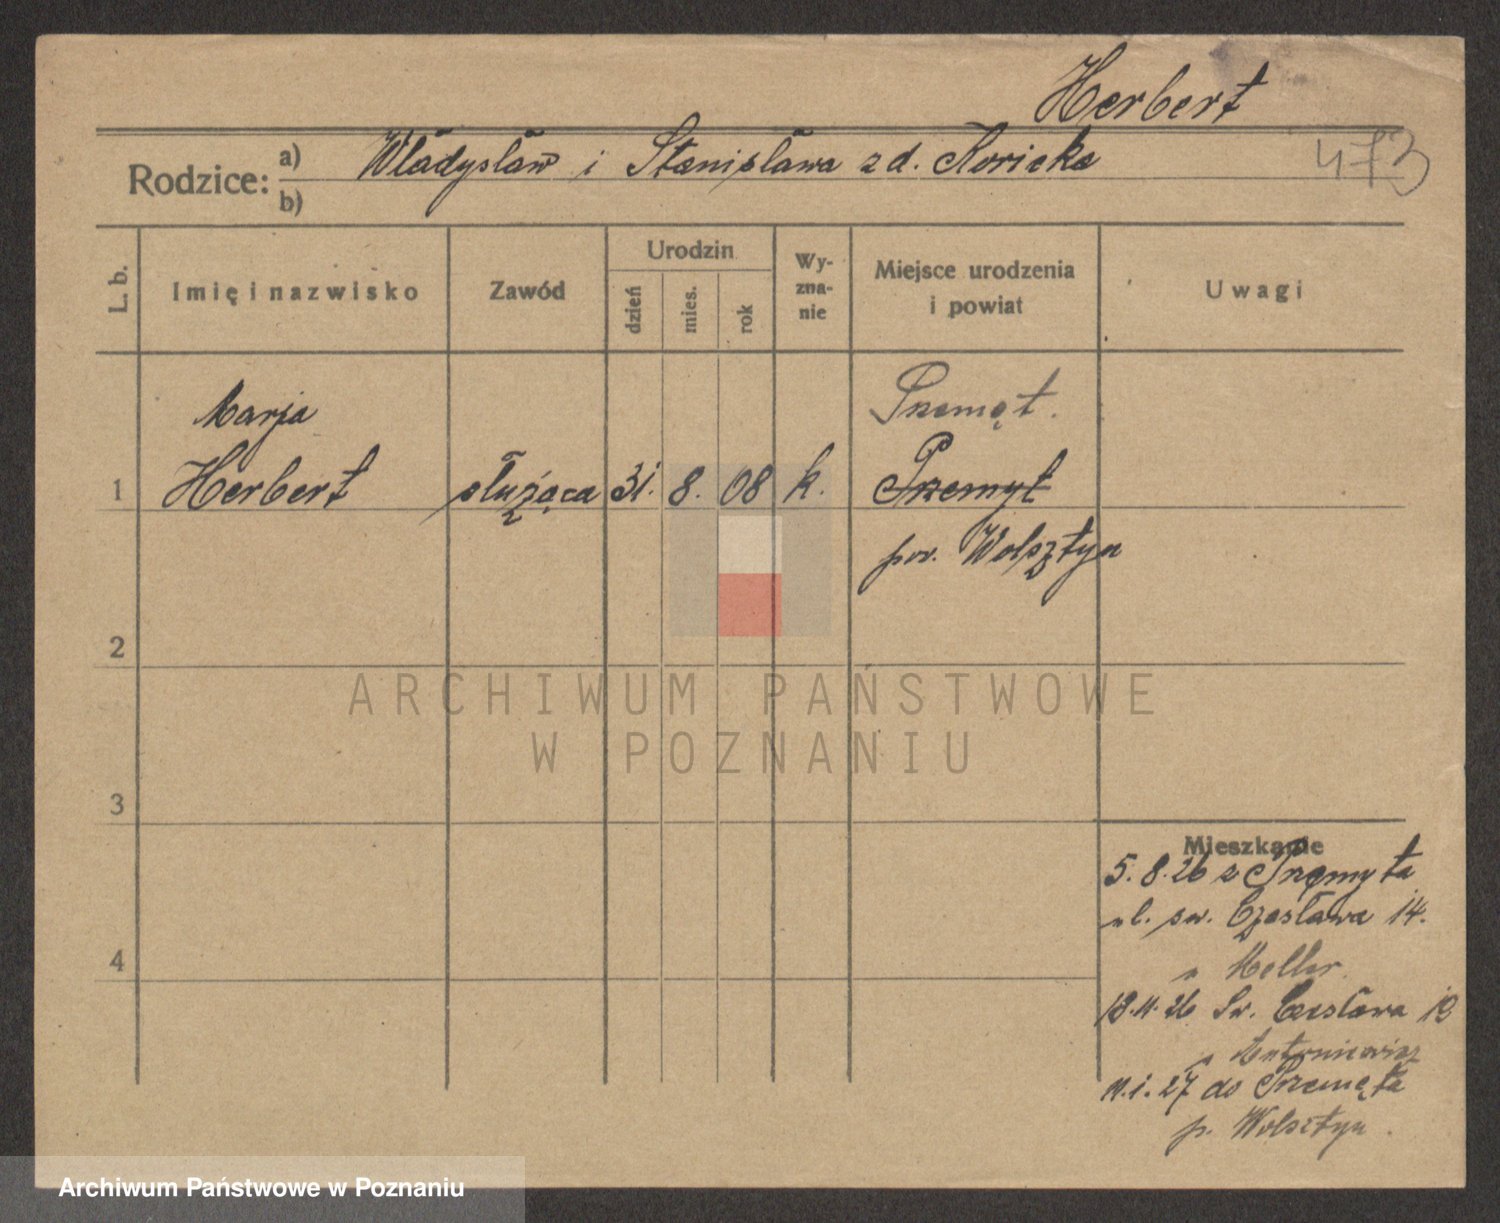 Herbert
473
Rodzice: a) Władysław i Stanisława z d. Noricka
b)
L. b. Imię i nazwisko Zawód Urodzin dzień mies. rok Wyznanie Miejsce urodzenia i powiat Uwagi
Marja Przemęt.
1 Herbert służąca 31. 8. 08 k. Przemyt
pow. Wolsztyn
2
ARCHIWUM PAŃSTWOWE
W POZNANIU
3
Mieszkanie
5. 8. 26 z Przemyta
ul. św. Czesława 14.
4
u Meller
13.11.26 Św. Czesława 12
u Antoniewicz
11.1.27 do Przemęta
p. Wolsztyn.
Archiwum Państwowe w Poznaniu